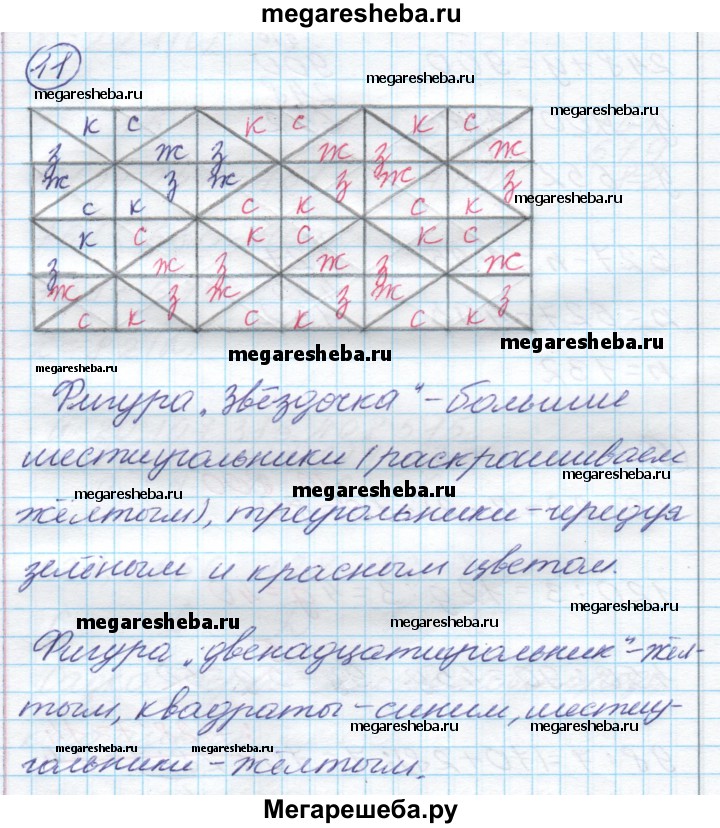 megaresheba.ru
11
megaresheba.ru
megaresheba.ru
к с к с к с
з ж з ж з ж
ж з ж з ж з
megaresheba.ru
с к с к с к
к с к с к с
з ж з ж з ж
ж з ж з ж з
с к с к с к
megaresheba.ru megaresheba.ru
megaresheba.ru
Фигура „Звёздочка“ - большие
шестиугольники (раскрашиваем
megaresheba.ru
megaresheba.ru
megaresheba.ru
жёлтым), треугольники - чередуя
зелёным и красным цветом.
megaresheba.ru
megaresheba.ru
megaresheba.ru
Фигура „двенадцатиугольник“ - жёл-
тым, квадраты - синим, шестиу-
megaresheba.ru megaresheba.ru
megaresheba.ru megaresheba.ru
гольники - жёлтым.
Мегарешеба.ру